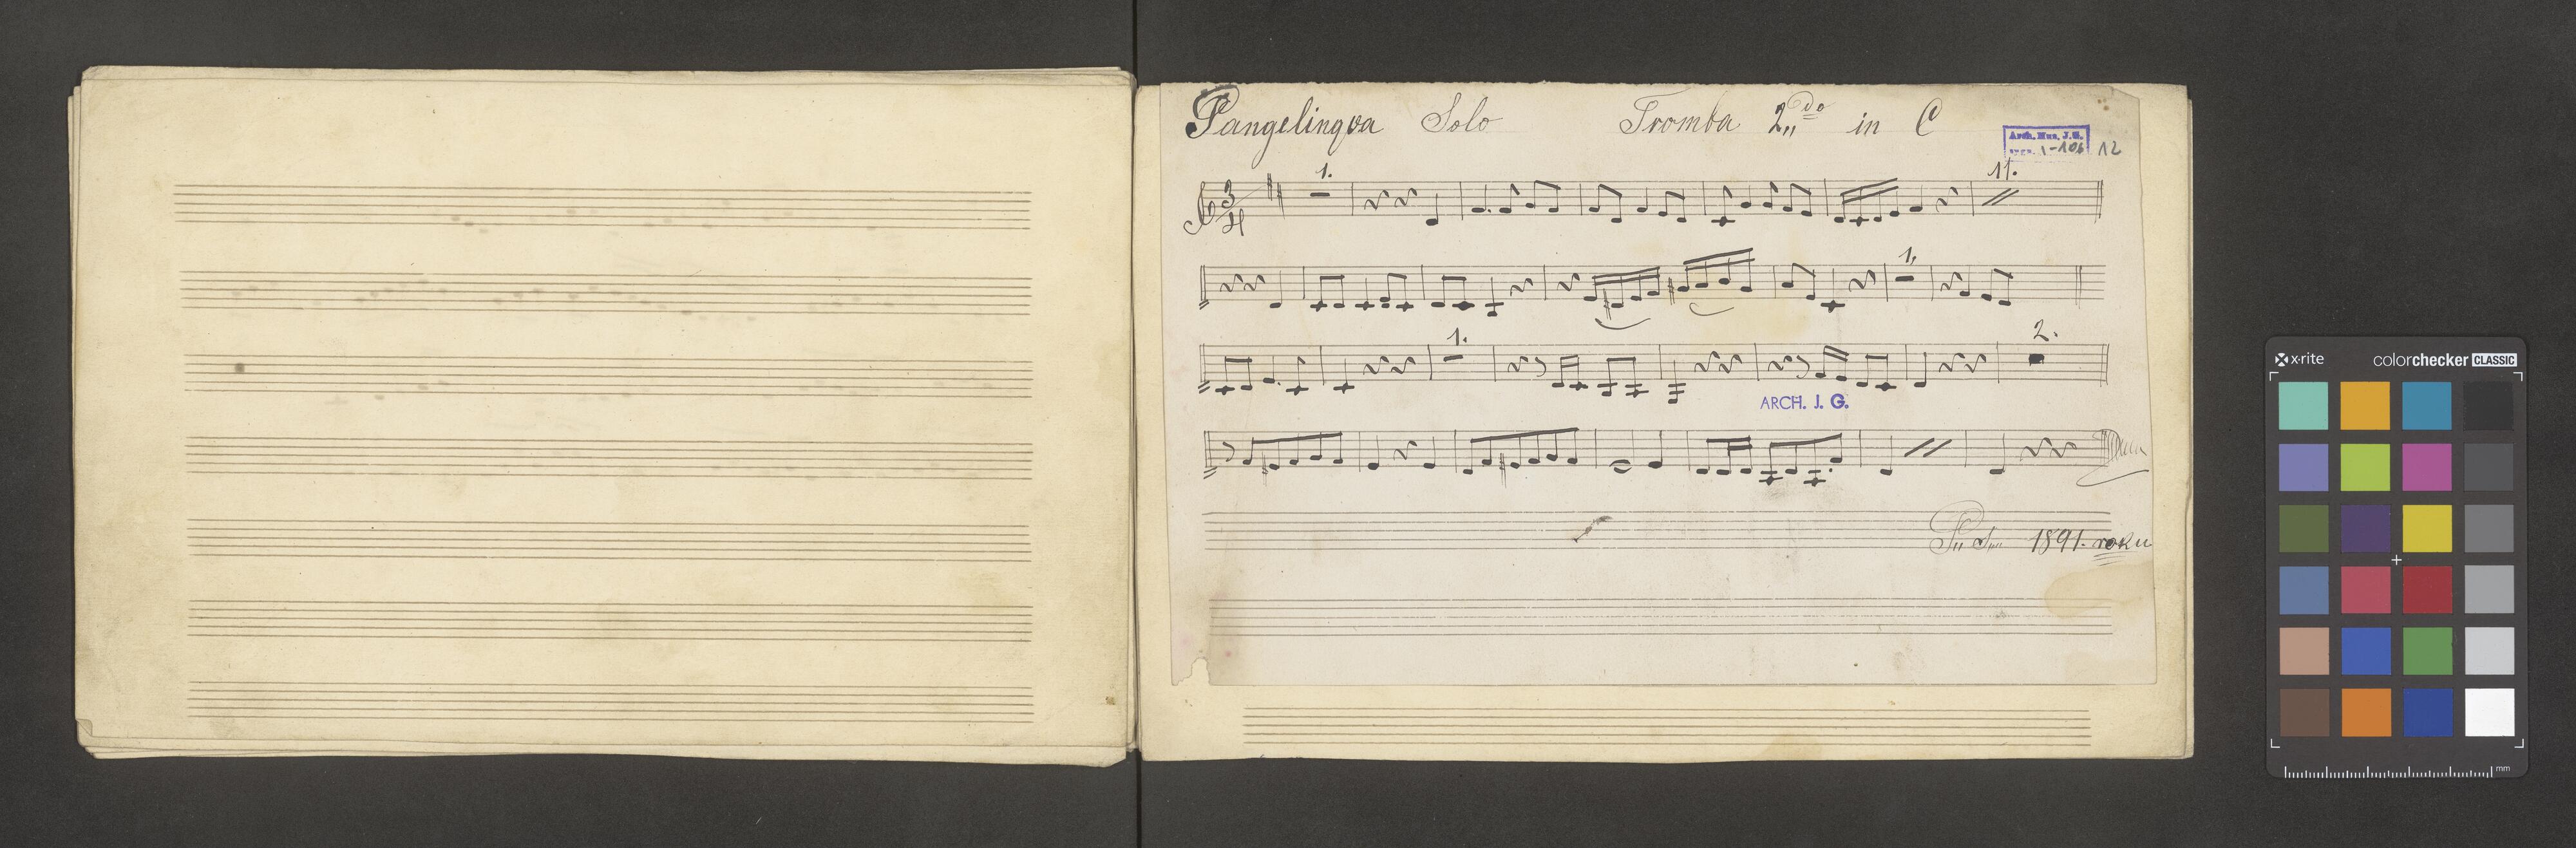 Pangelingva Solo Tromba 2do in C
Arch. Mus. J.G.
1-106 12
3/4
1.
11.
1,
1.
2.
ARCH. J. G.
1891. roku
x-rite colorchecker CLASSIC
mm